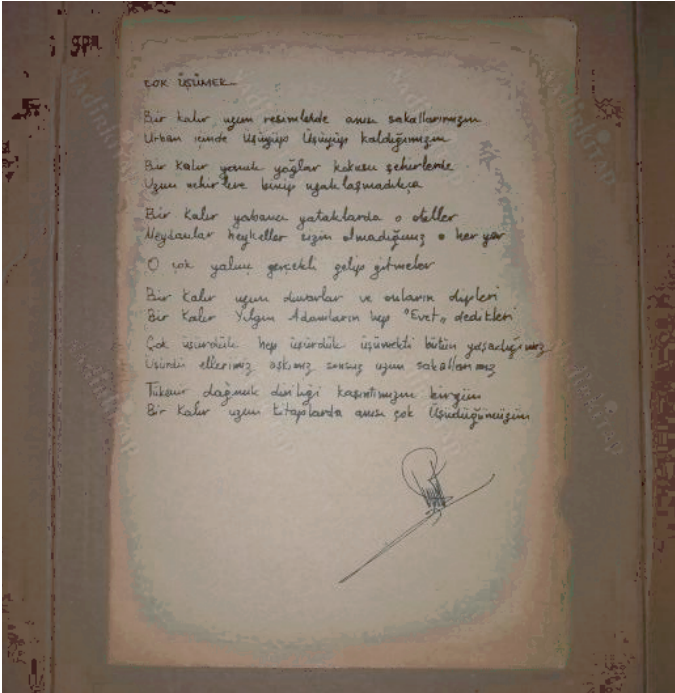 ÇOK ÜŞÜMEK
Bir kalır uzun resimlerde anısı sakallarımızın
Urban içinde Üşüyüp Üşüyüp kaldığımızın
Bir Kalır yanık yağlar kokusu şehirlerde
Uzun nehirlere binip uzaklaşmadıkça
Bir Kalır yabancı yataklarda o oteller
Meydanlar heykeller sizin olmadığınız o her yer
O çok yalnız gerçekli gelip gitmeler
Bir Kalır uzun duvarlar ve onların dipleri
Bir Kalır Yılgın Adamların hep "Evet" dedikleri
Çok üşürdük hep üşürdük üşümekti bütün yaşadığımız
Üşürdü ellerimiz aşkımız sonsuz uzun sakallarımız
Tükenir dağınık diriliği kaşıntımızın birgün
Bir Kalır uzun kitaplarda anısı çok Üşüdüğümüzün
nadirkitap